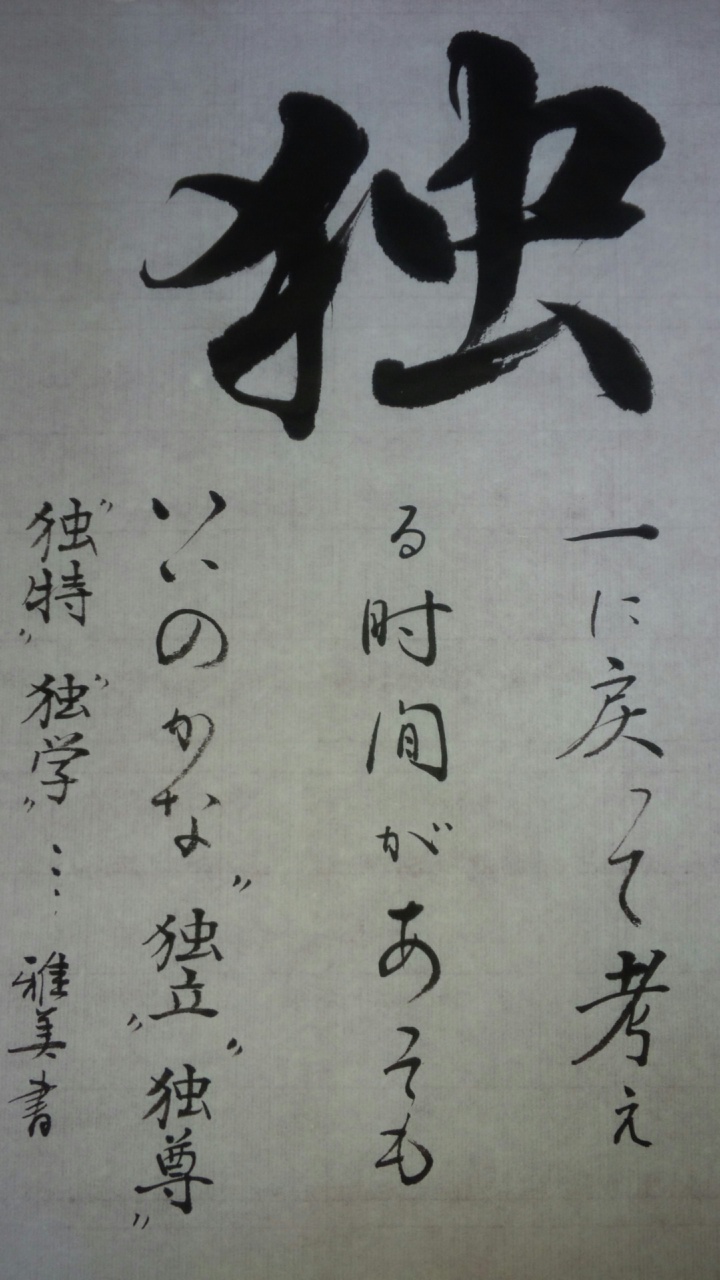 独
一に戻って考え
る时间があっても
いいのかな〝独立〟〝独尊〟
〝独特〟〝独学〟… 雅美書